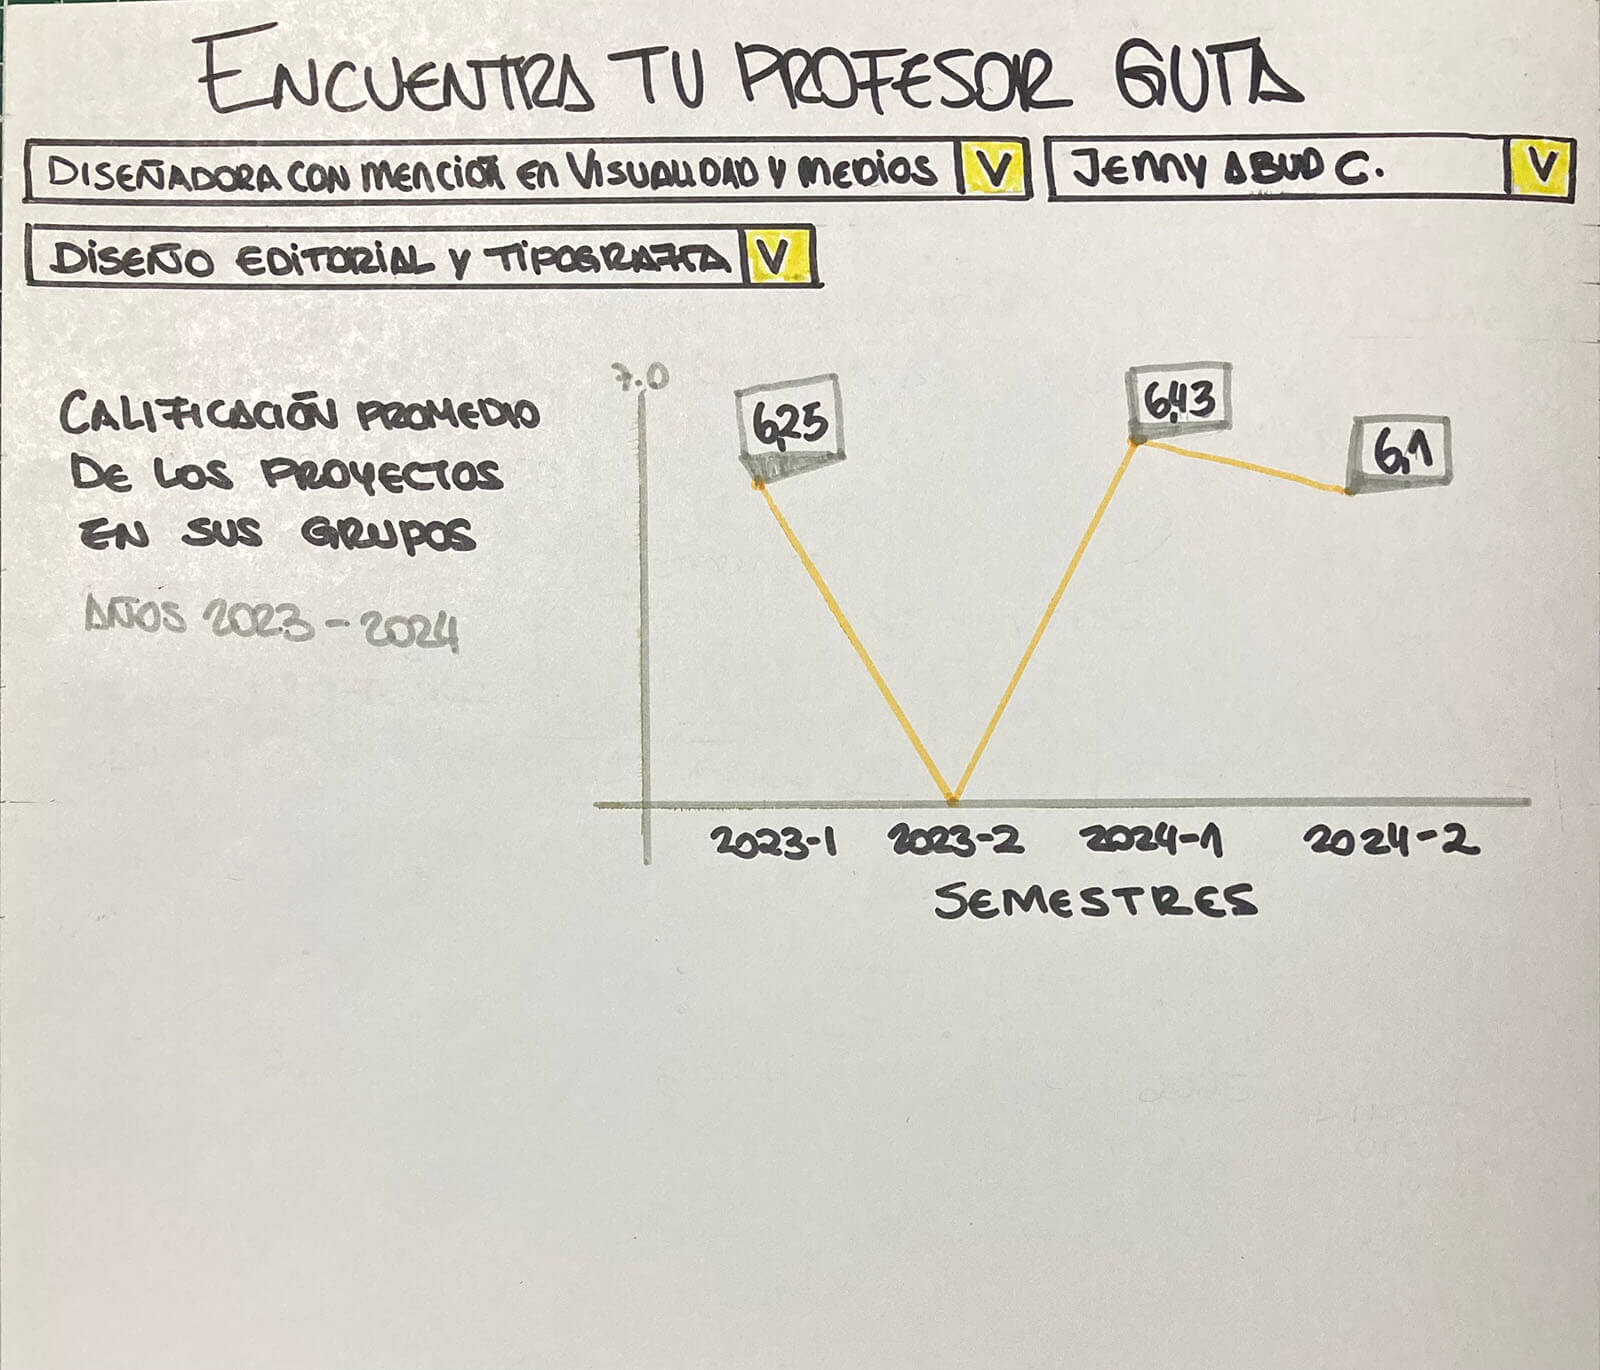 ENCUENTRA TU PROFESOR GUÍA
DISEÑADORA CON MENCIÓN EN VISUALIDAD Y MEDIOS V
JENNY ABUD C. V
DISEÑO EDITORIAL Y TIPOGRAFÍA V
CALIFICACIÓN PROMEDIO
DE LOS PROYECTOS
EN SUS GRUPOS
AÑOS 2023-2024
7.0
6,25
6,43
6,1
2023-1 2023-2 2024-1 2024-2
SEMESTRES